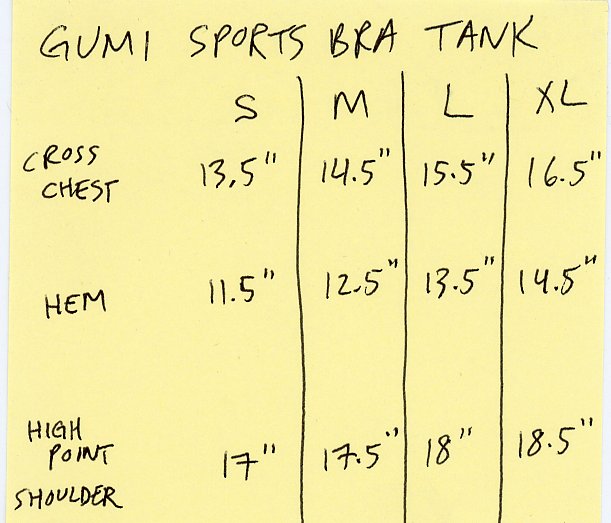 GUMI SPORTS BRA TANK
S M L XL
CROSS
CHEST 13.5" 14.5" 15.5" 16.5"
HEM 11.5" 12.5" 13.5" 14.5"
HIGH
POINT 17" 17.5" 18" 18.5"
SHOULDER